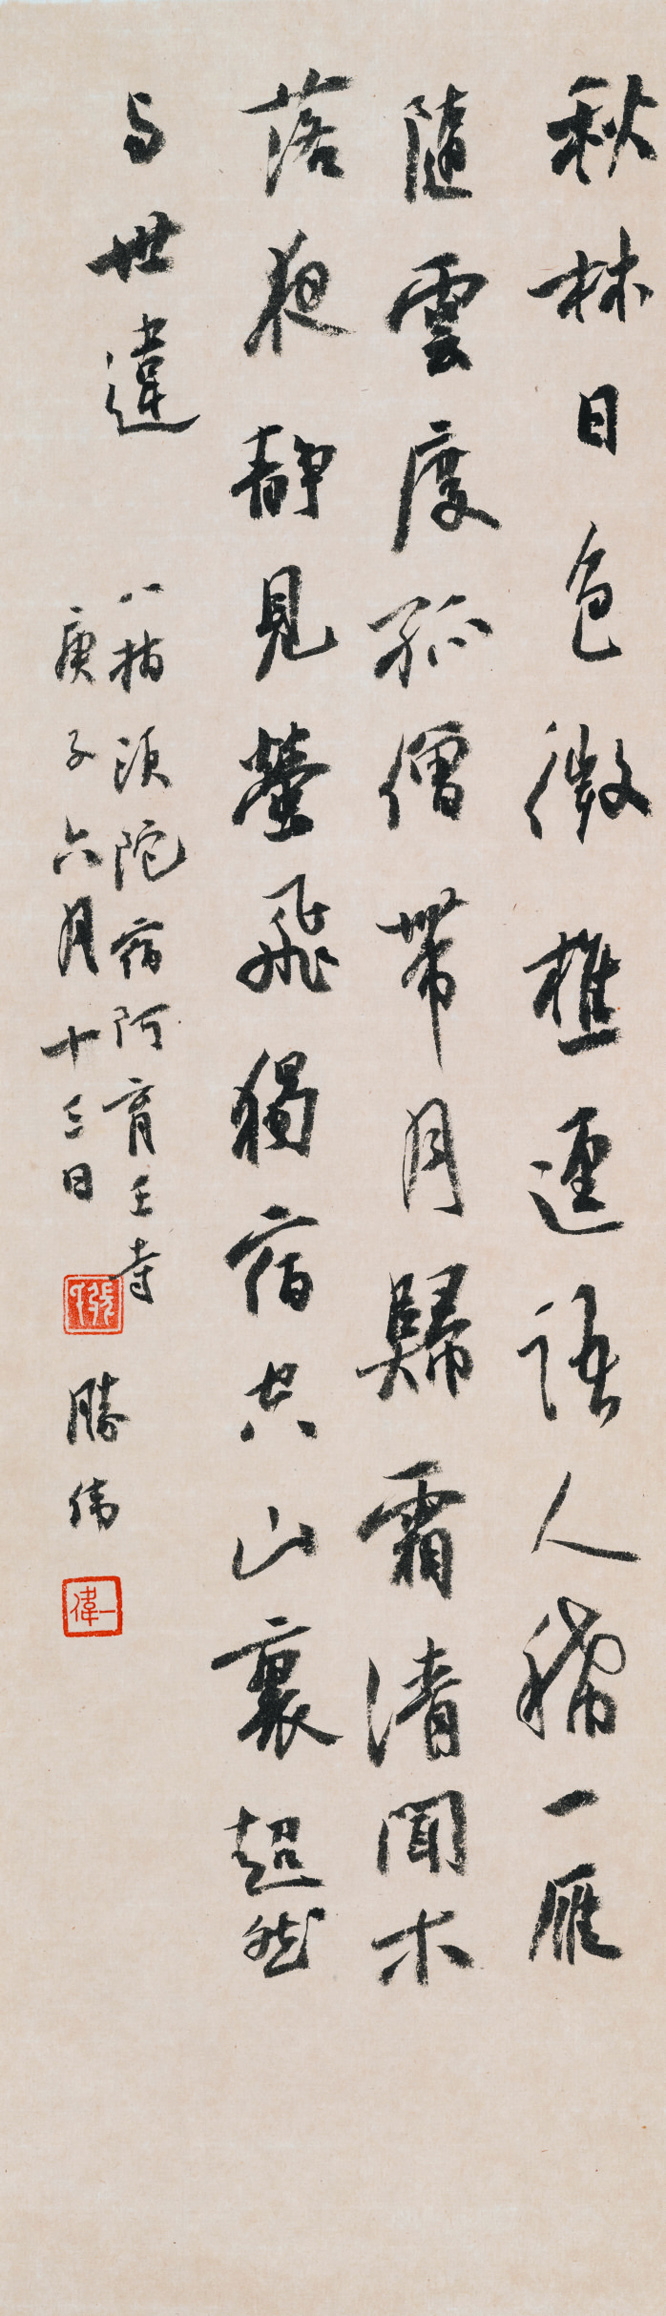 秋林日色微樵逕語人稀一雁
隨雲度孤僧帶月歸霜清聞木
落夜静見螢飛獨宿空山裏超然
与世違
八指頭陀宿阿育王寺
庚子六月十三日
勝偉